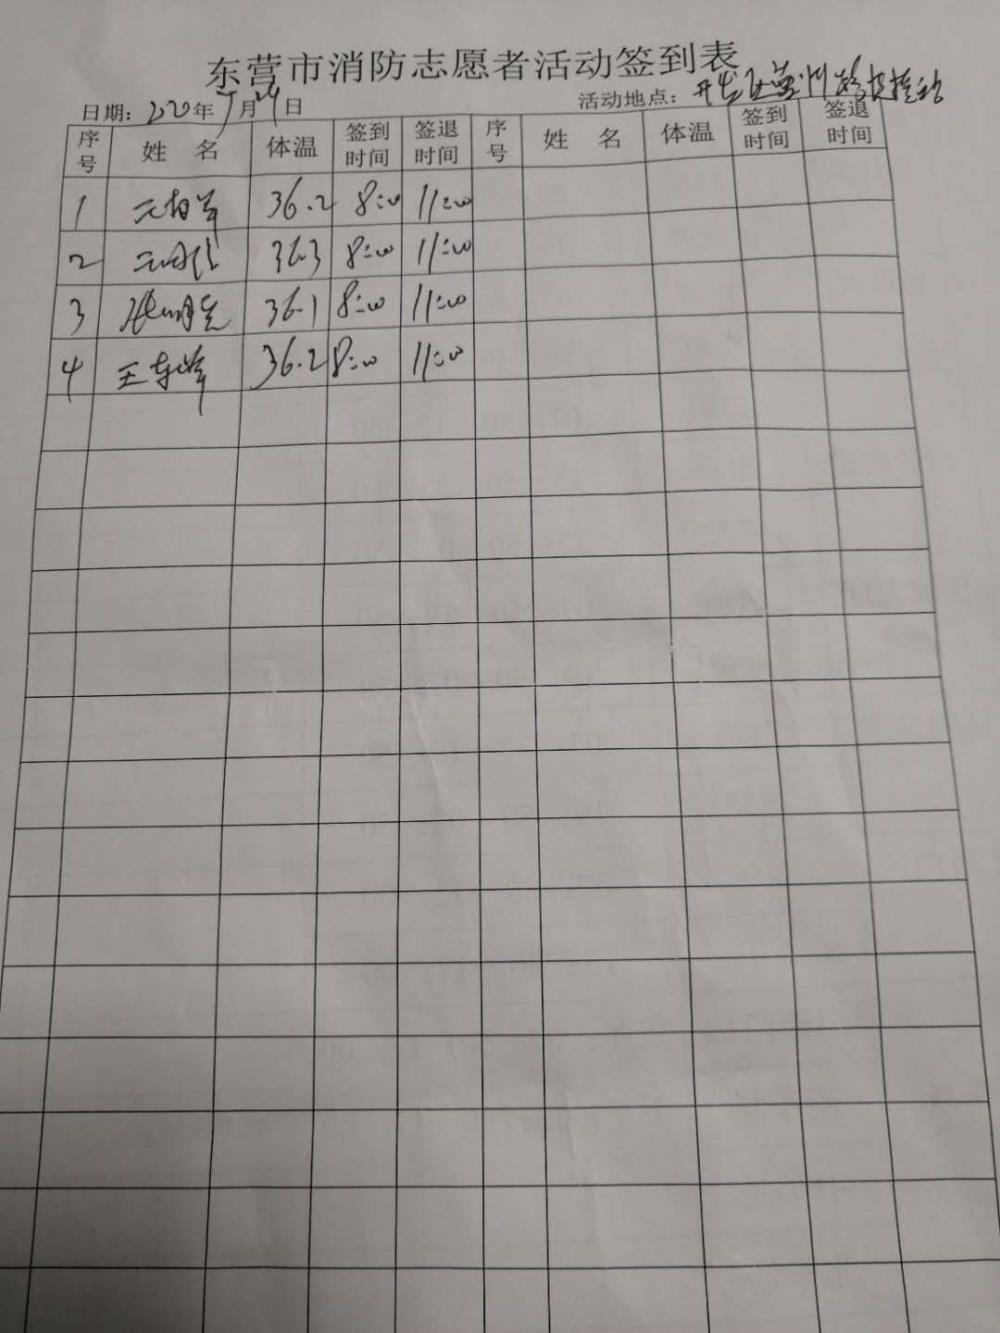 东营市消防志愿者活动签到表
日期: 2020年5月24日 活动地点: 开发区
序号 姓 名 体温 签到时间 签退时间 序号 姓 名 体温 签到时间 签退时间
1 36.2 8:00 11:00
2 36.3 8:00 11:00
3 36.1 8:00 11:00
4 王 36.2 8:00 11:00